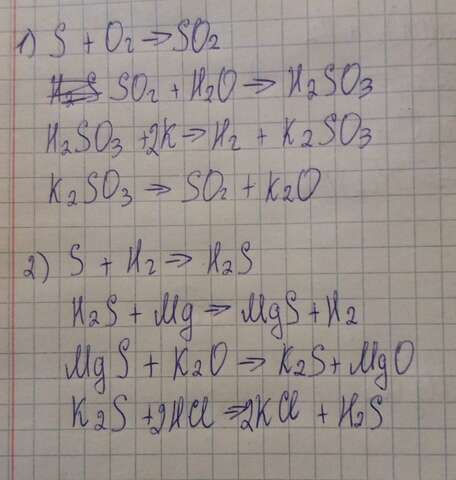 1) S + O2 ⇒ SO2
SO2 + H2O ⇒ H2SO3
H2SO3 + 2K ⇒ H2 + K2SO3
K2SO3 ⇒ SO2 + K2O
2) S + H2 ⇒ H2S
H2S + Mg ⇒ MgS + H2
MgS + K2O ⇒ K2S + MgO
K2S + 2HCl ⇒ 2KCl + H2S